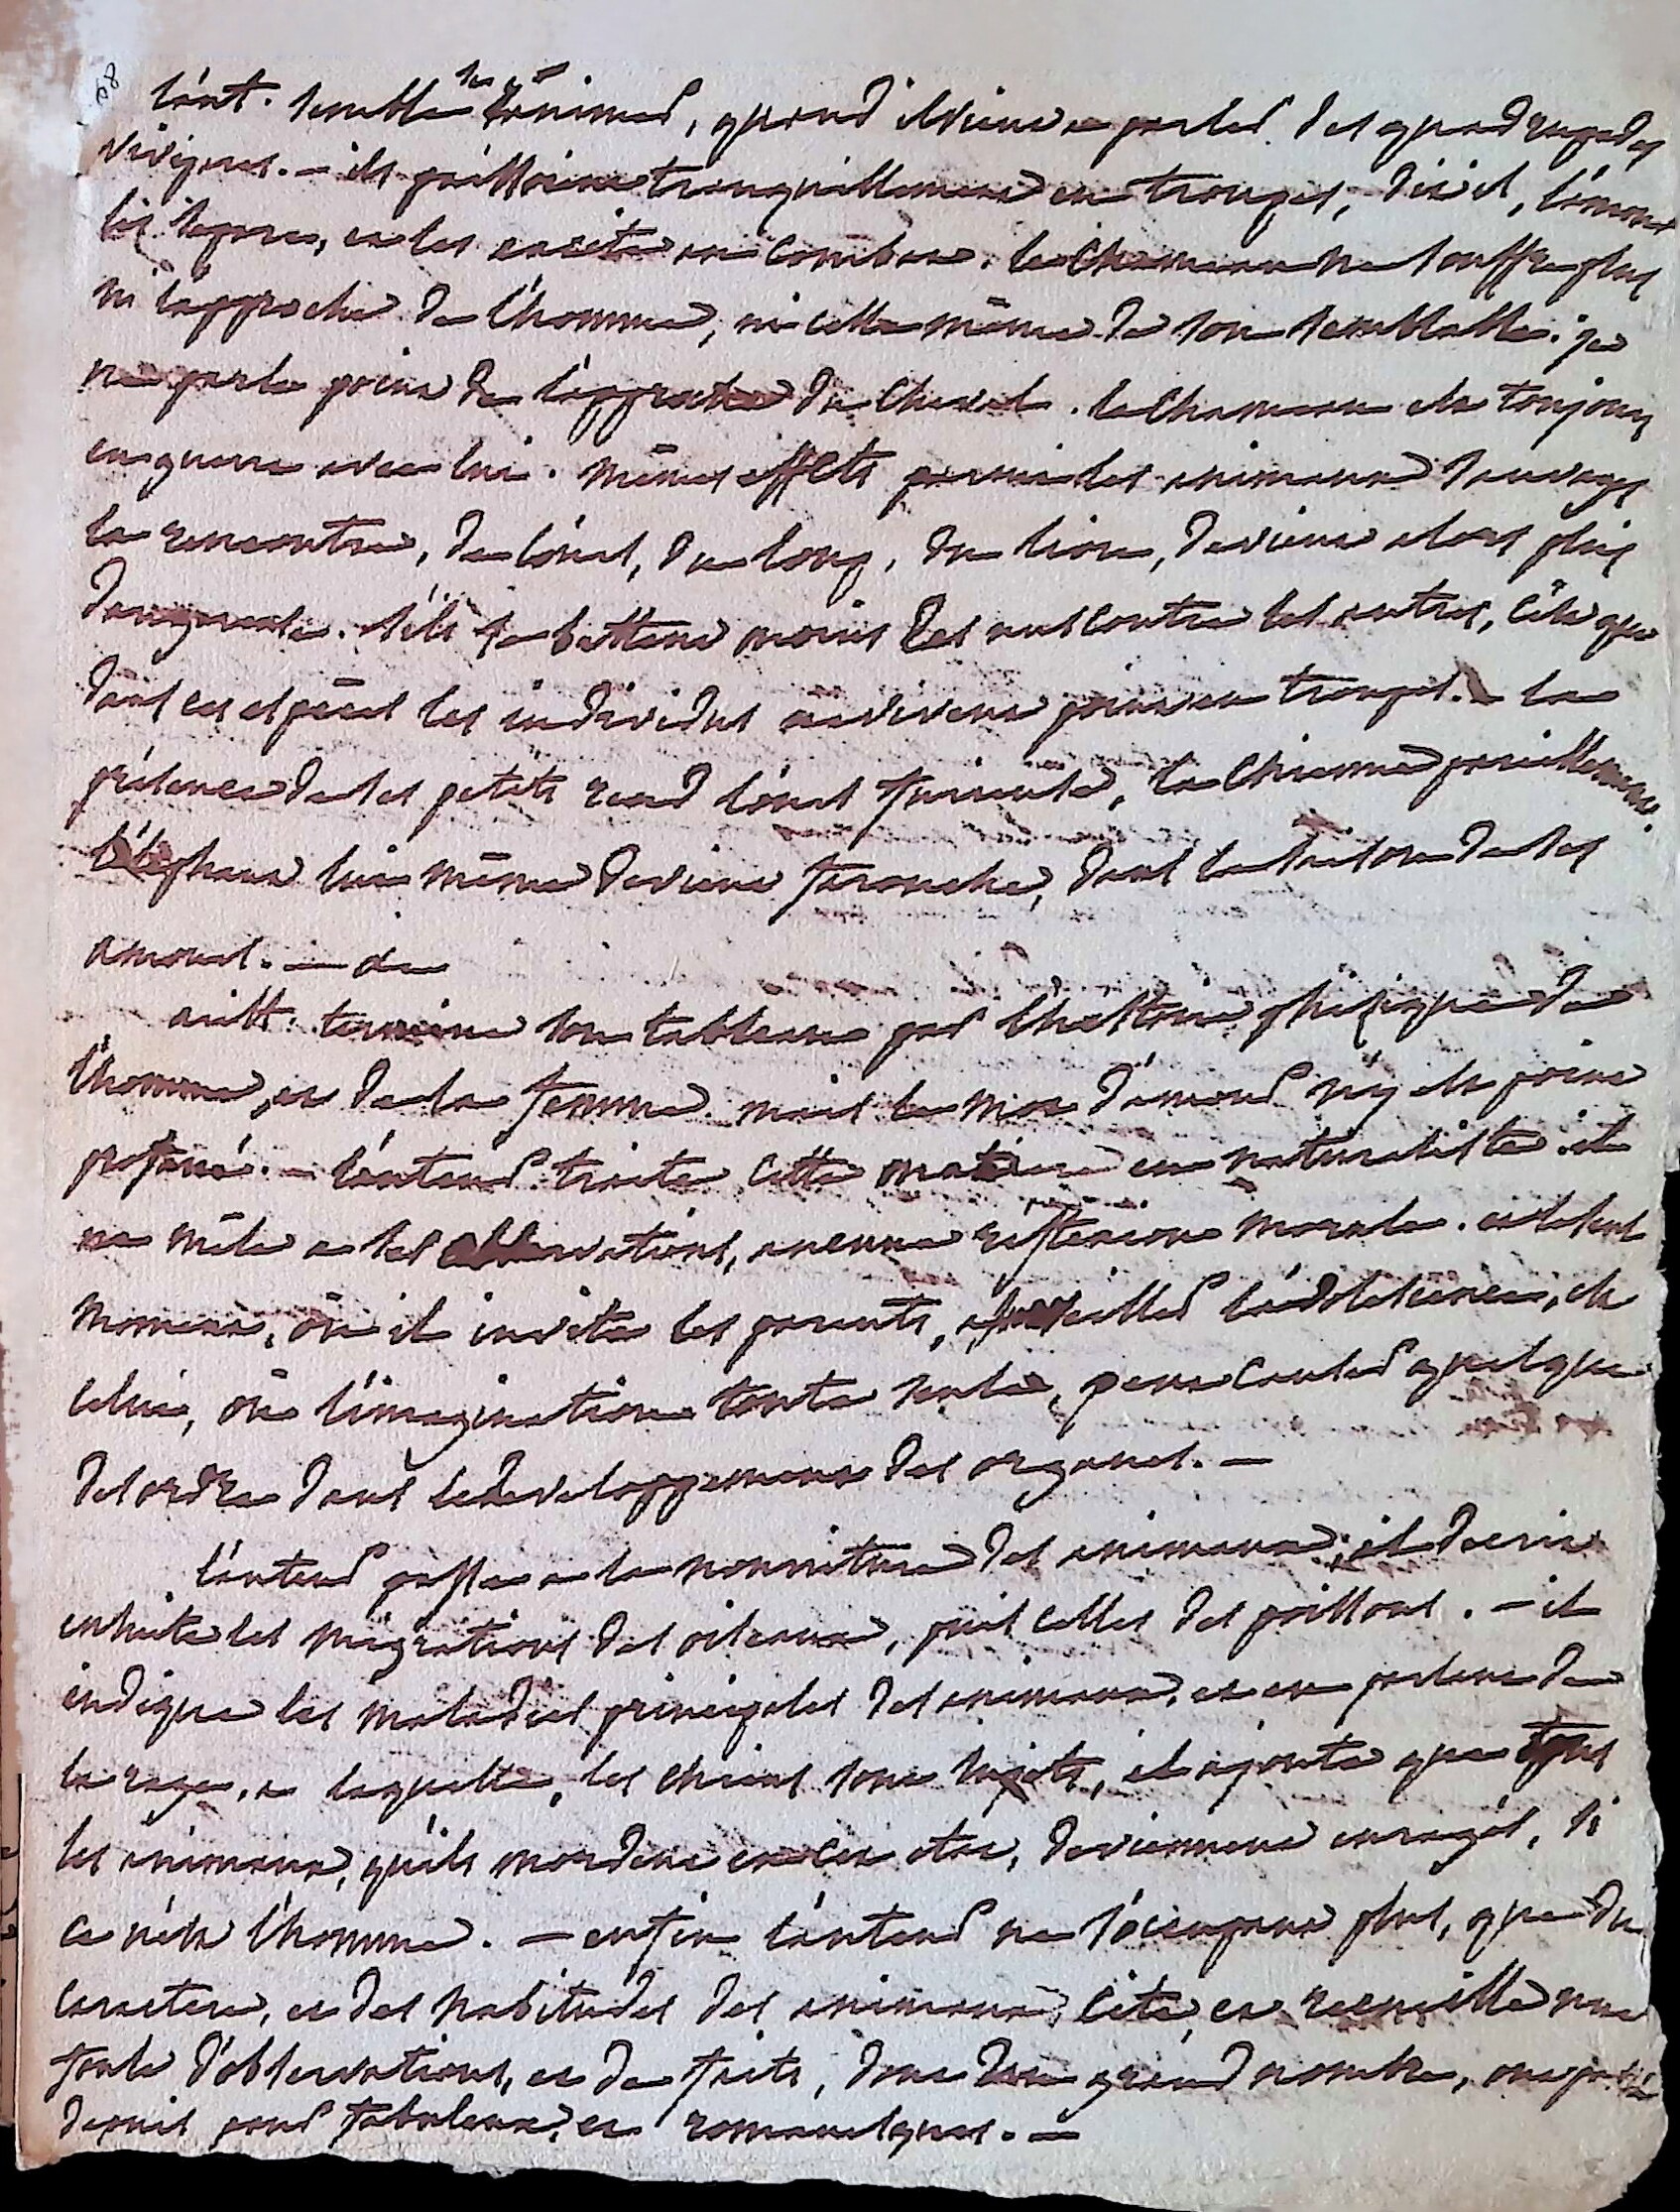 68
sont. semble s'animer, quand il vient a parler des quadrupedes
vivipares. — ils paissoient tranquillement en troupes, dit il, l'amour
les separe, et les excite au combat. le chameau ne souffre plus
ni l'approche de l'homme, ni celle même de son semblable. je
ne parle point de l'approche du cheval. le chameau est toujours
en guerre avec lui. mêmes effets parmi les animaux sauvages
la rencontre, de l'ours, du loup, du lion, devient alors plus
dangereuse. s'ils se battent moins les uns contre les autres, c'est que
dans ces especes les individus ne vivent point en troupes. — la
présence de ses petits rend l'ourse furieuse, la chienne pareillement.
l'éléphant lui même devient farouche, dans la saison de ses
amours. —
arist. termine son tableau par l'histoire phisique de
l'homme, et de la femme. mais le mot d'amour n'y est point
profané. — l'auteur traite cette matiere en naturaliste. il
ne mêle a ses observations, aucune reflexion morale. et le seul
moment, où il invite les parents, a surveiller l'adolescence, est
celui, où l'imagination toute seule, peut causer quelque
desordre dans le developpement des organes. —
l'auteur passe a la nourriture des animaux; il decrit
ensuite les migrations des oiseaux, puis celles des poissons. — il
indique les maladies principales des animaux, et en parlant de
la rage, a laquelle, les chiens sont sujets, il ajoute que tous
les animaux, qu'ils mordent en cet etat, deviennent enragés, si
ce n'est l'homme. — enfin l'auteur ne s'occupant plus, que du
caractere, et des habitudes des animaux, cite, et recueille une
foule d'observations, et de faits, dont un grand nombre, ont passé
depuis pour fabuleux, et romanesques. —